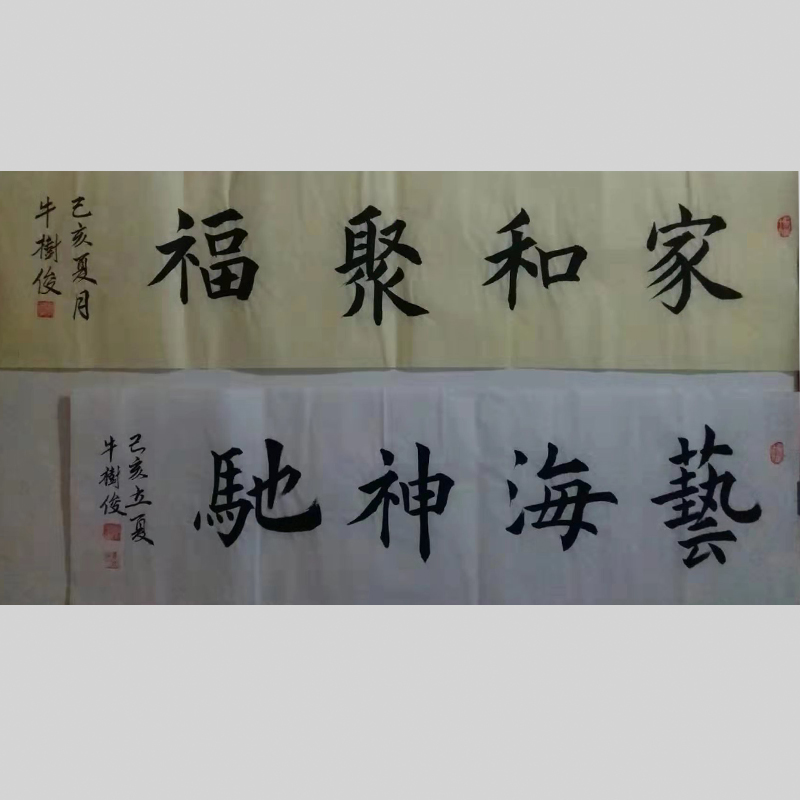 家和聚福
己亥夏月
牛樹俊
藝海神馳
己亥立夏
牛樹俊